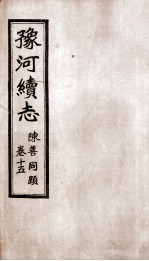 豫河續志
陳善同題
卷十五